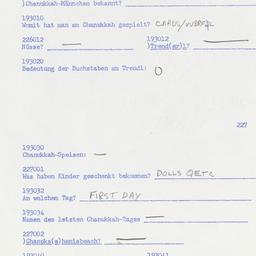 )Chanukkah-Männchen bekannt?
193010
Womit hat man an Chanukkah gespielt? CARDS/
226012 193012
Nüsse? — )Trend(er)l? —
193020
Bedeutung der Buchstaben am Trendl: O
227
193030
Chanukkah-Speisen: —
227001
Was haben Kinder geschenkt bekommen? DOLLS GETC
193032
An welchem Tag? FIRST DAY
193034
Namen des letzten Chanukkah-Tages —
227002
)Chanuka(a)hmisbeach? —